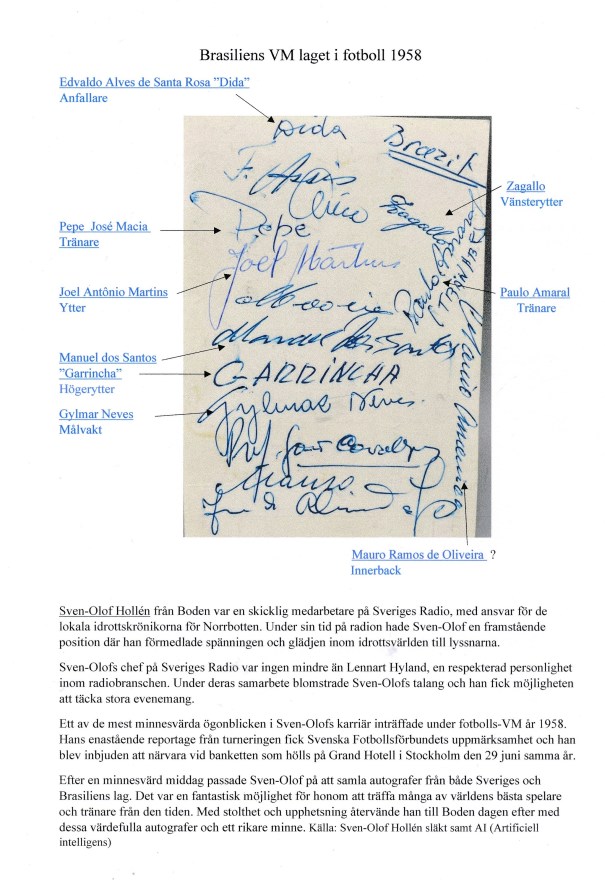 Brasiliens VM laget i fotboll 1958
Edvaldo Alves de Santa Rosa ”Dida”
Anfallare
Dida
Brazil
F. Assis
Zagallo
Vänsterytter
Zagallo
Pepe José Macia
Tränare
Pepe
Joel Martins
Joel Antônio Martins
Ytter
Paulo Amaral
Tränare
Paulo Amaral
(TRÄNARE)
Manuel dos Santos
”Garrincha”
Högerytter
Manuel dos Santos
GARRINCHA
Gylmar Neves
Målvakt
Gylmar Neves
Prof.
Mauro Ramos de Oliveira ?
Innerback
Sven-Olof Hollén från Boden var en skicklig medarbetare på Sveriges Radio, med ansvar för de
lokala idrottskrönikorna för Norrbotten. Under sin tid på radion hade Sven-Olof en framstående
position där han förmedlade spänningen och glädjen inom idrottsvärlden till lyssnarna.
Sven-Olofs chef på Sveriges Radio var ingen mindre än Lennart Hyland, en respekterad personlighet
inom radiobranschen. Under deras samarbete blomstrade Sven-Olofs talang och han fick möjligheten
att täcka stora evenemang.
Ett av de mest minnesvärda ögonblicken i Sven-Olofs karriär inträffade under fotbolls-VM år 1958.
Hans enastående reportage från turneringen fick Svenska Fotbollsförbundets uppmärksamhet och han
blev inbjuden att närvara vid banketten som hölls på Grand Hotell i Stockholm den 29 juni samma år.
Efter en minnesvärd middag passade Sven-Olof på att samla autografer från både Sveriges och
Brasiliens lag. Det var en fantastisk möjlighet för honom att träffa många av världens bästa spelare
och tränare från den tiden. Med stolthet och upphetsning återvände han till Boden dagen efter med
dessa värdefulla autografer och ett rikare minne. Källa: Sven-Olof Hollén släkt samt AI (Artificiell
intelligens)